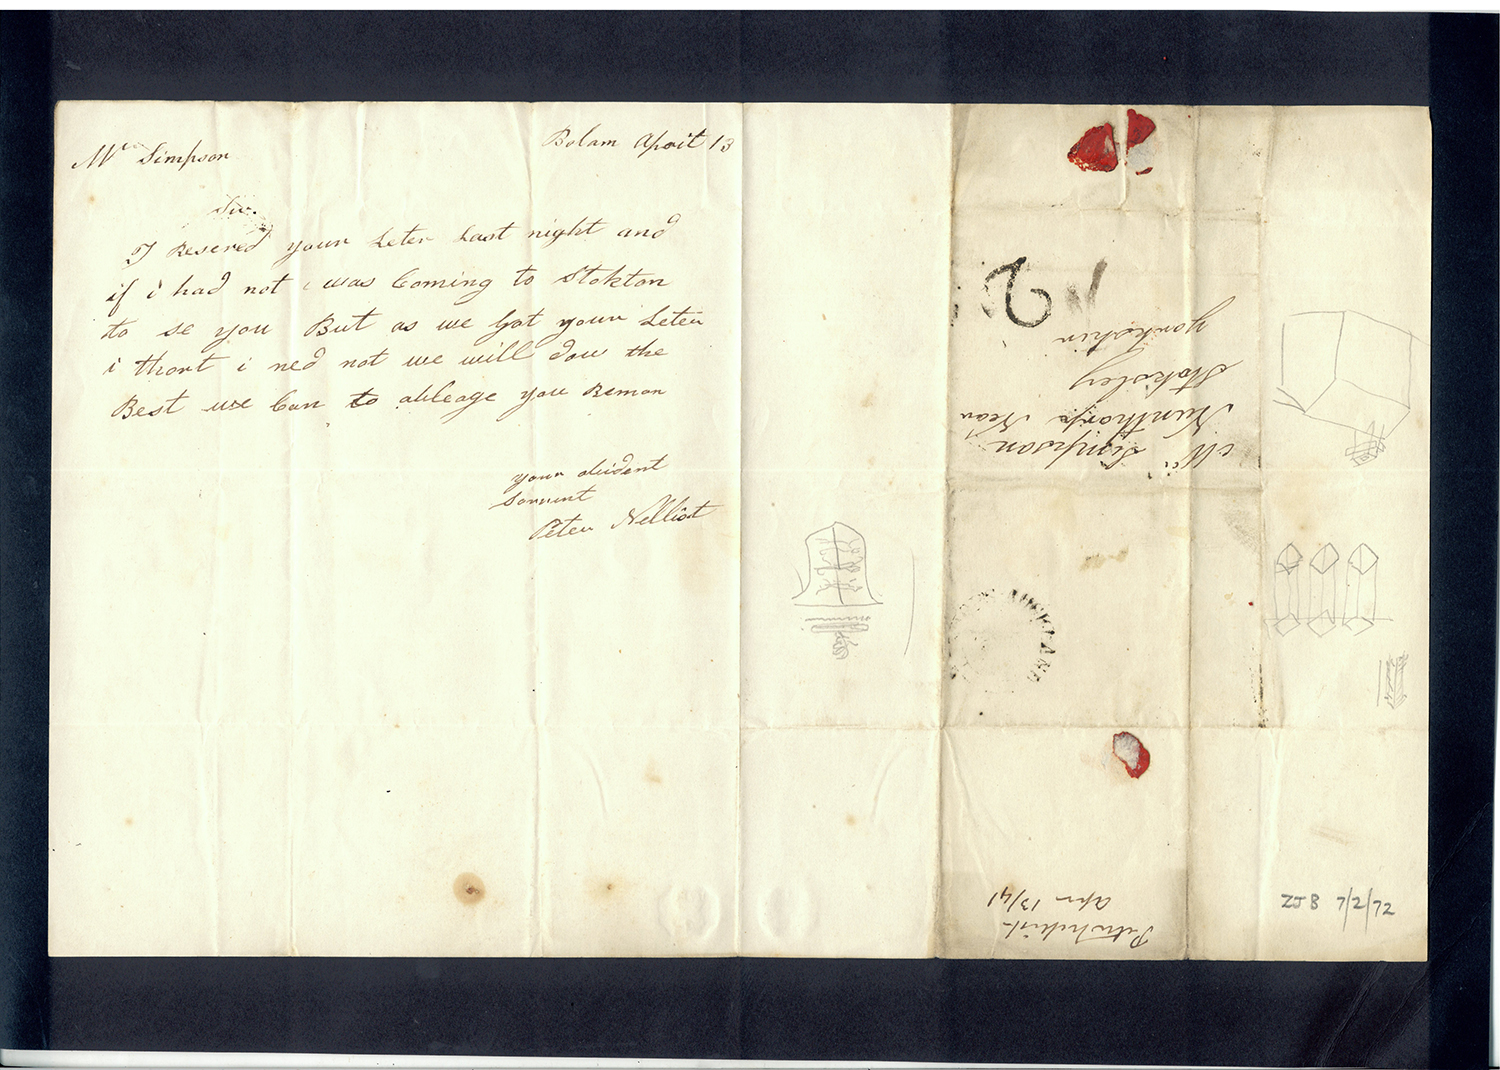 Bolam April 13
Mr Simpson
Sir.
I Resered your Leter Last night and
if i had not i was Coming to Stokton
to se you But as we Got your Leter
i thort i ned not we will dow the
Best we Can to ableage you Reman
your abident
Sarvent
Peter Nellist
2
Mr Simpson
Nunthorpe Near
Stoksley
yorkshir
AUCKLAND
Peter Nelist
Apr 13/41
ZJB 7/2/72